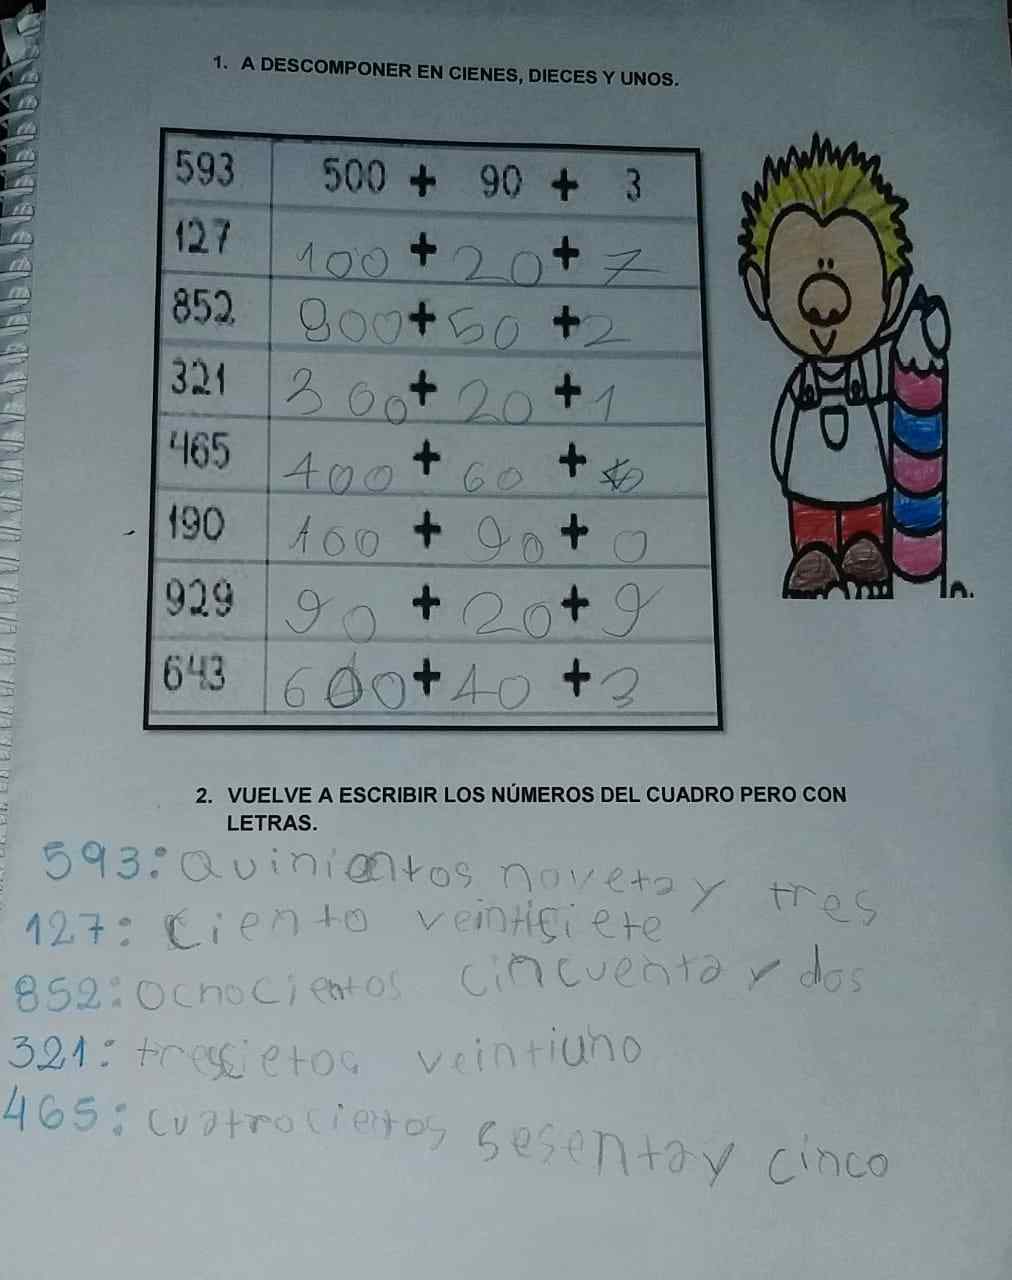 1. A DESCOMPONER EN CIENES, DIECES Y UNOS.
593 500 + 90 + 3
127 100 + 20 + 7
852 800 + 50 + 2
321 300 + 20 + 1
465 400 + 60 +
190 100 + 90 + 0
929 90 + 20 + 9
643 600 + 40 + 3
2. VUELVE A ESCRIBIR LOS NÚMEROS DEL CUADRO PERO CON
LETRAS.
593: Quinientos noveta y tres
127: Ciento veintisiete
852: ochocientos cincuenta y dos
321: trescietos veintiuno
465: cuatrocientos sesenta y cinco